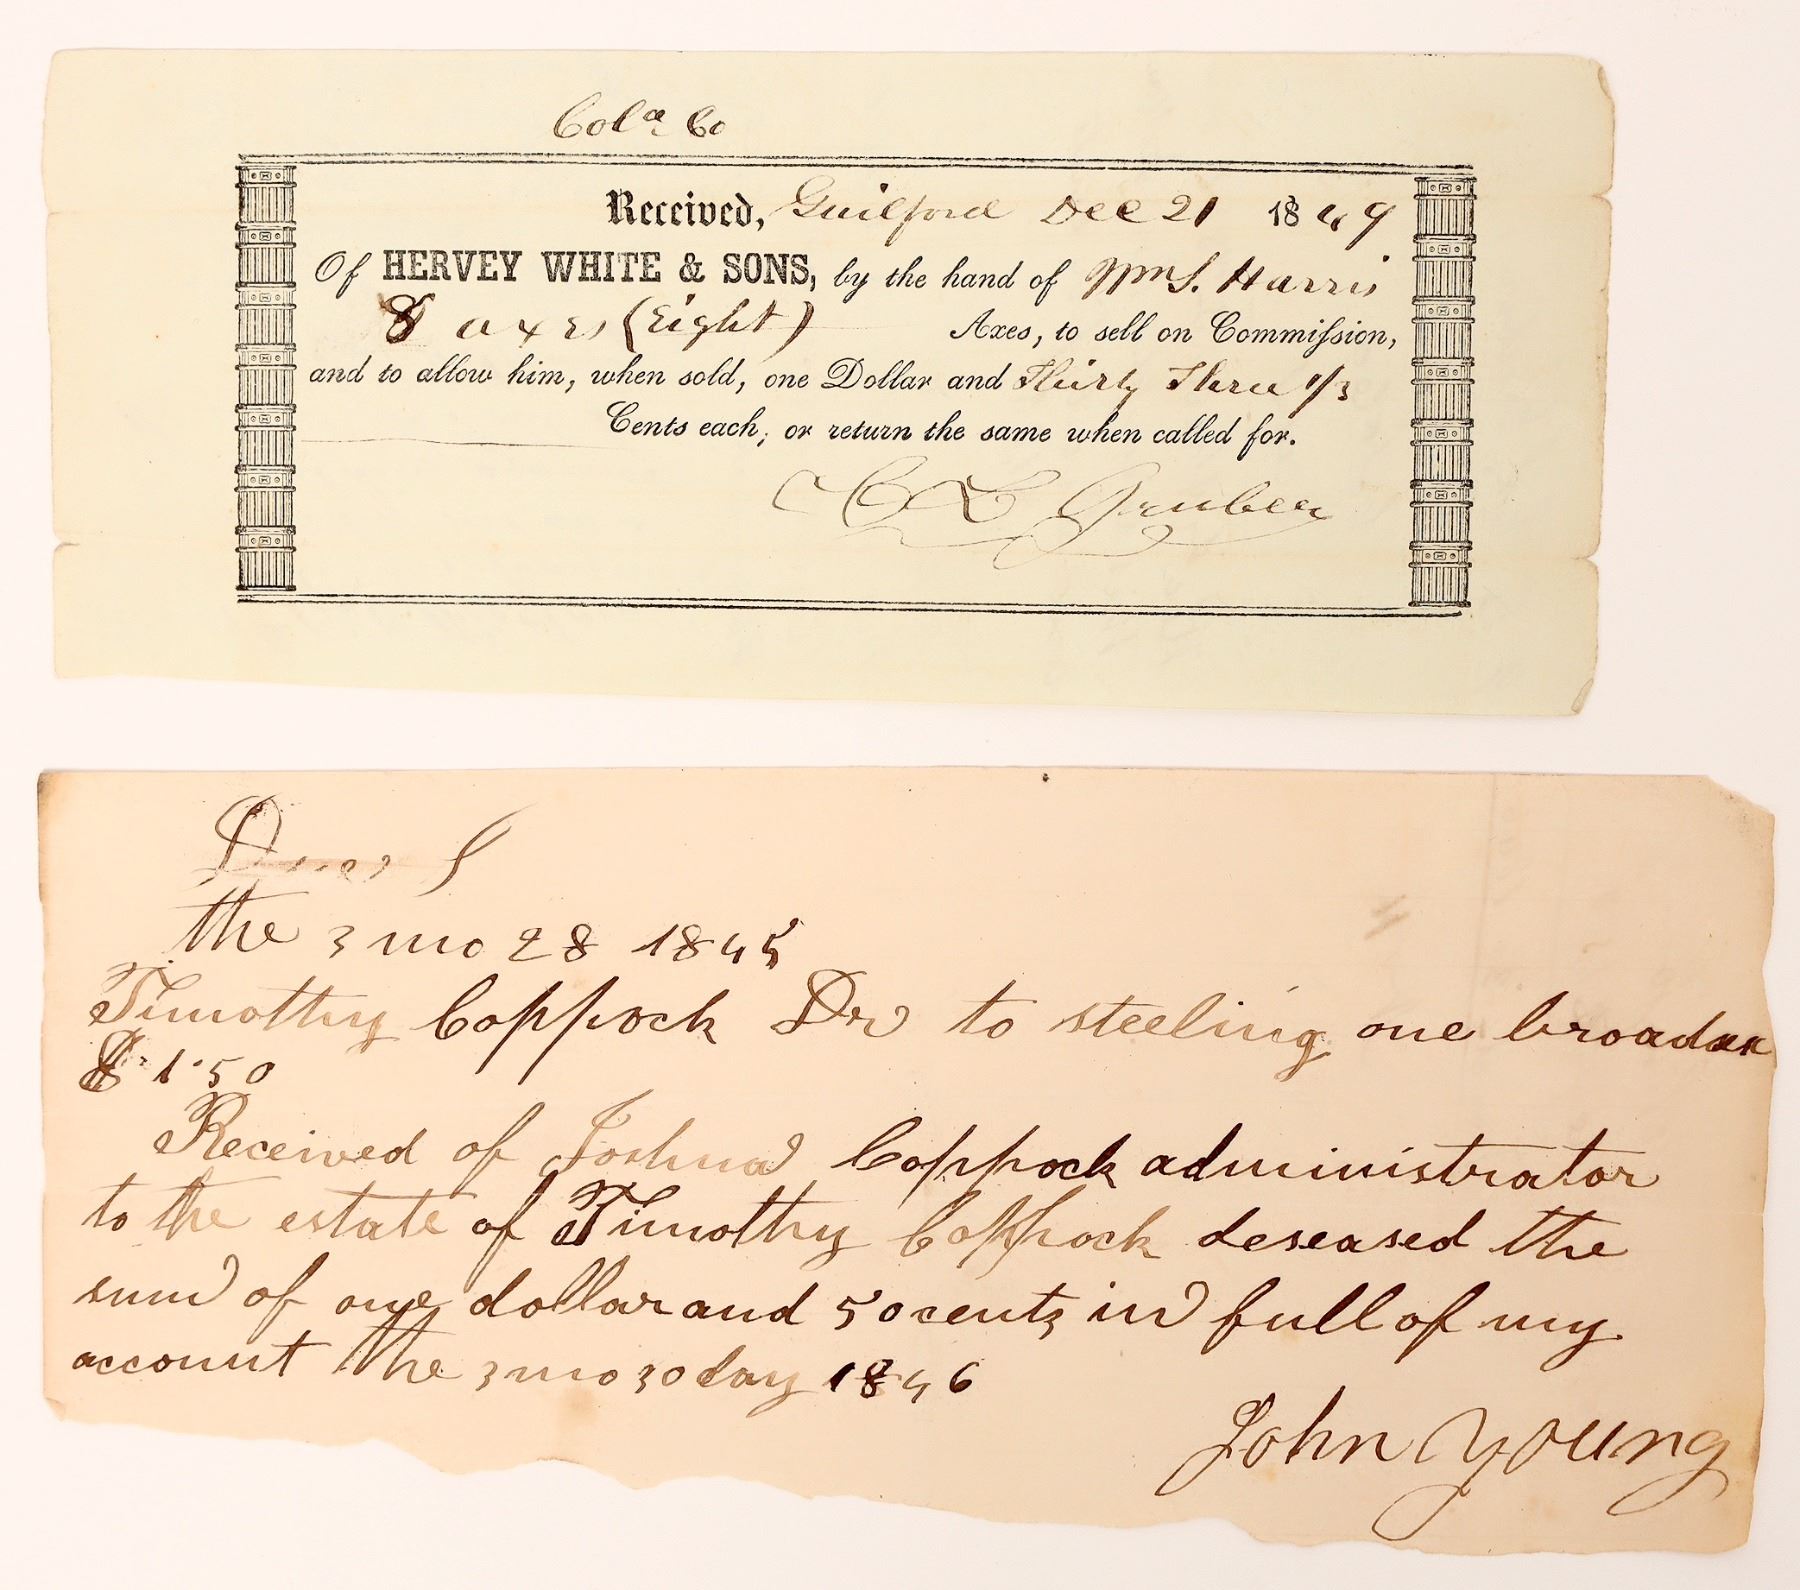 Cola Co
Received, Guilford Dec 21 1849
Of HERVEY WHITE & SONS, by the hand of Wm S. Harris
8 axes (Eight) Axes, to sell on Commiſsion,
and to allow him, when sold, one Dollar and Thirty Three 1/3
Cents each, or return the same when called for.
Gruber
the 3 mo 28 1845
Timothy Coppock Dr to steeling one broadax
$ 1.50
Received of Joshua Coppock administrator
to the estate of Timothy Coppock deseased the
sum of one dollar and 50 cents in full of my
account the 3 mo 30 day 1846
John Young